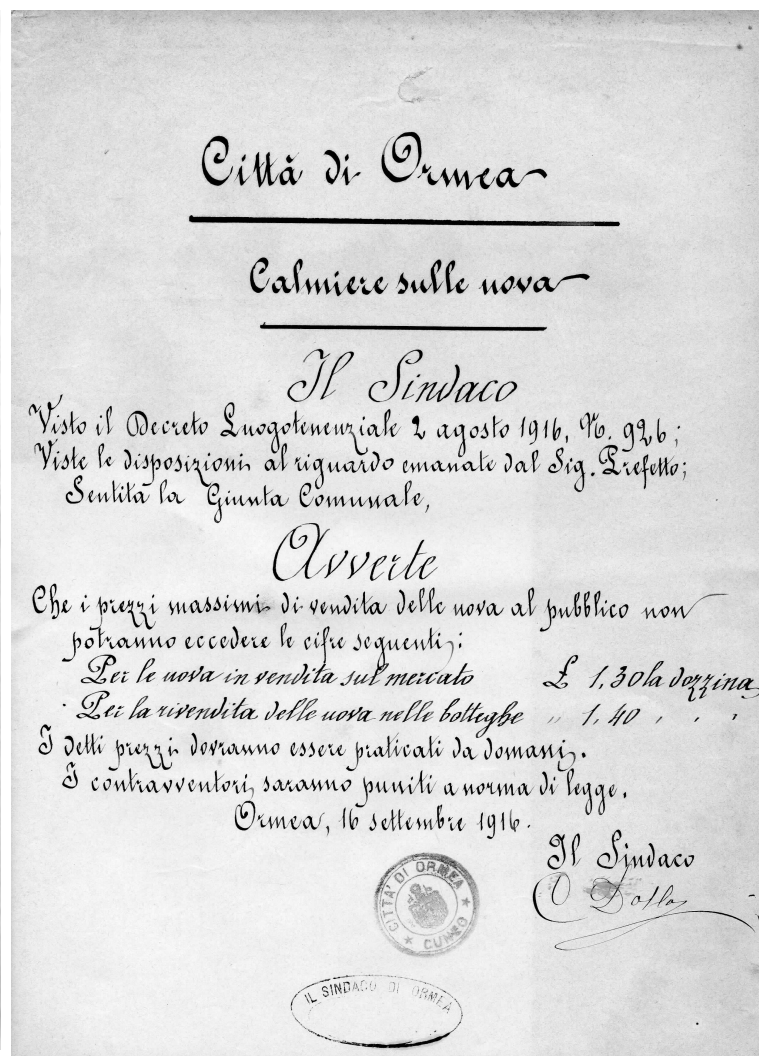 Città di Ormea
Calmiere sulle uova
Il Sindaco
Visto il Decreto Luogotenenziale 2 agosto 1916, N. 926;
Viste le disposizioni al riguardo emanate dal Sig. Prefetto;
Sentita la Giunta Comunale,
Avverte
Che i prezzi massimi di vendita delle uova al pubblico non
potranno eccedere le cifre seguenti:
Per le uova in vendita sul mercato £ 1,30 la dozzina
Per la rivendita delle uova nelle botteghe " 1,40 " " "
I detti prezzi dovranno essere praticati da domani.
I contravventori saranno puniti a norma di legge.
Ormea, 16 settembre 1916.
Il Sindaco
CITTA' DI ORMEA
CUNEO
IL SINDACO DI ORMEA